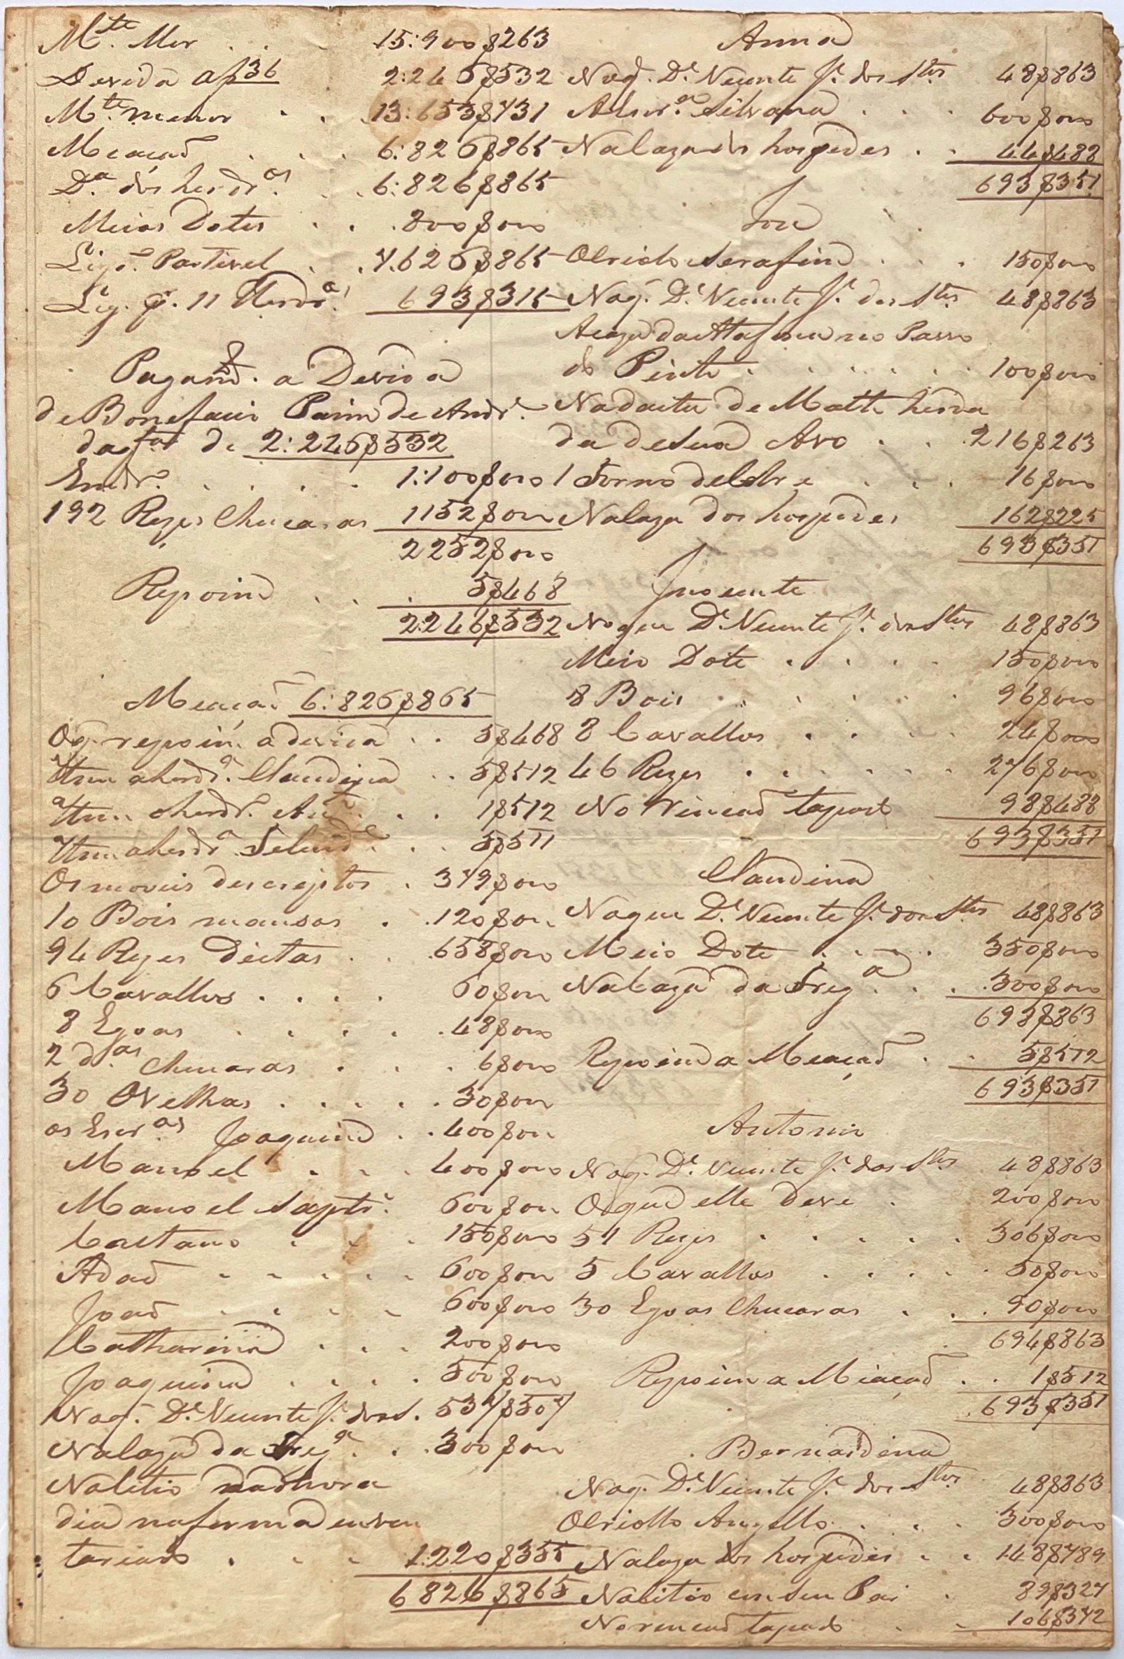 M.te Mor . . 15:900$263
Devida a f 36 2:246$532
M.te menor . . 13:653$731
Meaçaõ . . . 6:826$865
D.a dos herdr.os . 6:826$865
Meios Dotes . . 800$000
Liq.o Partivel . . 7:626$865
Liq. p. 11 Herdr.os 693$315
Pagam.to a Devida
de Bonefacio Pinn de Andr.e
da q.tia de 2:246$532
Em dr.o . . . . 1:100$000
192 Rezes Chucaras 1152$000
2252$000
Repoim . . . 5$468
2:246$532
Meaçaõ 6:826$865
O q. repoim a devida . . 5$468
Item a herdr.a Claudina . . 5$512
Item o herdr.o An.to . . 1$512
Item a herdr.a . . 5$511
Os moveis descriptos . 379$000
10 Bois mansos . . 120$000
94 Rezes Dictas . . 658$000
6 Cavallos . . . . 60$000
8 Egoas . . . . 48$000
2 d.as Chucaras . . . 6$000
30 Ovelhas . . . . . 30$000
os Escr.os Joaquim . . 400$000
Manoel . . . 400$000
Manoel 600$000
Caetano . . . 150$000
Adaõ . . . . . 600$000
Joaõ . . . . . 600$000
Catharina . . . 200$000
Joaquina . . . . 500$000
Na q. D.r Vicente J.e dos S. 537$507
Na Caza da Freg.a . . 300$000
Na Citio
dia na forma enven
tariado . . . 1:220$355
6826$865
Anna
Na q. D.r Vicente J.e dos S.tos 48$863
A Escr.a Silvana . . . 600$000
Na Caza dos hospedes . . 44$488
693$351
Joa
O Criolo Serafim . . . 150$000
Na q. D.r Vicente J.e dos S.tos 48$863
A Caza da Atafona no Passo
do Pinto . . . . . . 100$000
Na dacta de Matte herda
da de Sua Avo . . . 216$263
1 Forno de Cobre . . . 16$000
Na Caza dos hospedes 162$225
693$351
Inocente
Na que D.r Vicente J.e dos S.tos 48$863
Meio Dote . . . . 150$000
8 Bois . . . . . 96$000
2 Cavallos . . . . 24$000
46 Rezes . . . . . . 276$000
No Rincaõ tapado 98$488
693$351
Claudina
Na que D.r Vicente J.e dos S.tos 48$863
Meio Dote . . . . 350$000
Na Caza da Freg.a . . . 300$000
698$863
Repoim a Meaçaõ . . 5$512
693$351
Antonio
Na q. D.r Vicente J.e dos S.tos 48$863
O que elle deve . 200$000
51 Rezes . . . . . 306$000
5 Cavallos . . . . . 50$000
30 Egoas Chucaras . . . 90$000
694$863
Repoim a Meaçaõ . . 1$512
693$351
Bernardina
Na q. D.r Vicente J.e dos S.tos 48$863
O Criollo Angello . . . 300$000
Na Caza dos hospedes . . 148$789
Na Citio em seu Pai . 89$327
No rincaõ tapado . . 106$372